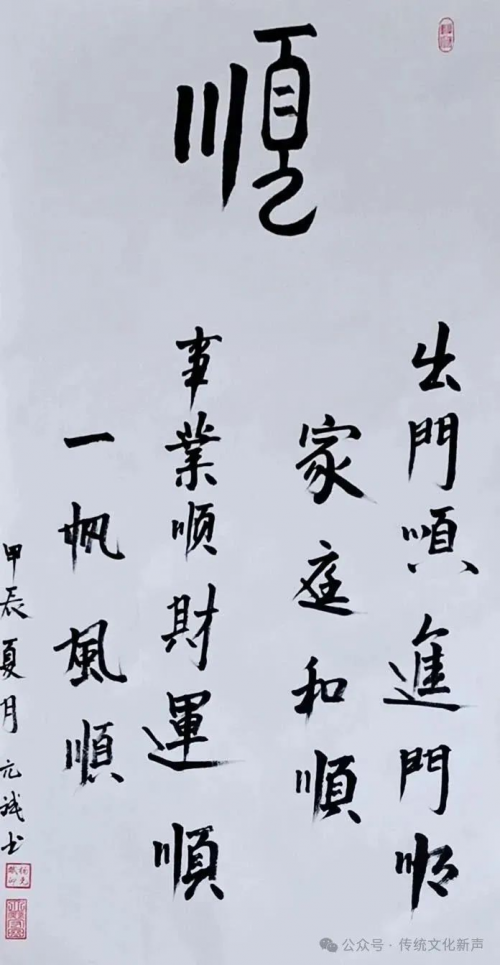 順
出門順進門顺
家庭和順
事業顺財運順
一帆風順
甲辰夏月元誠书
公众号·传统文化新声